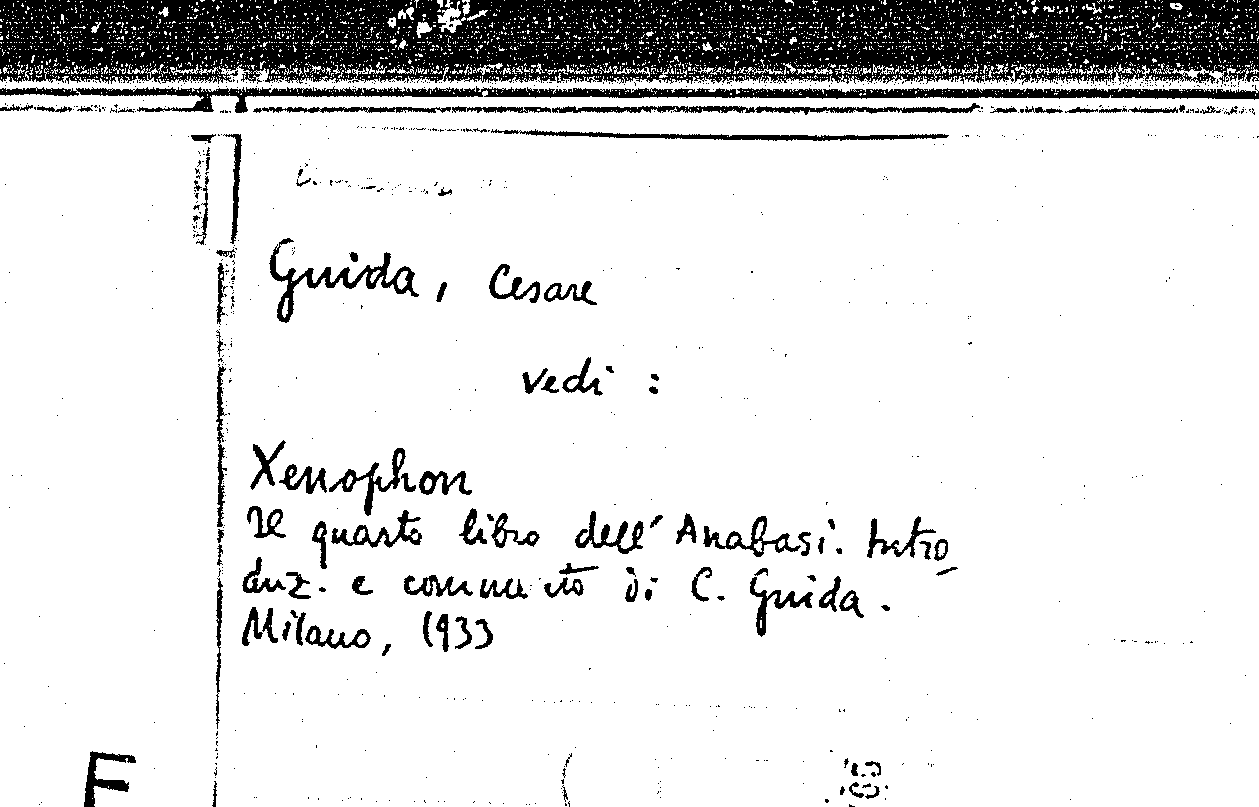 Guida, Cesare
vedi :
Xenophon
Il quarto libro dell'Anabasi. Intro_
duz. e commento di C. Guida.
Milano, 1933
F